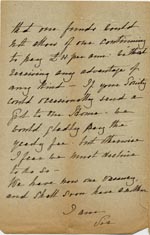 that our funds would
not allow of our continuing
to pay £1 per ann. without
receiving any advantage of
any kind – If your Society
could occasionally send a
Girl to our Home we
would gladly pay the
yearly fee but otherwise
I fear we must decline
to do so –
We have now one vacancy
and shall soon have another
I am
Sir